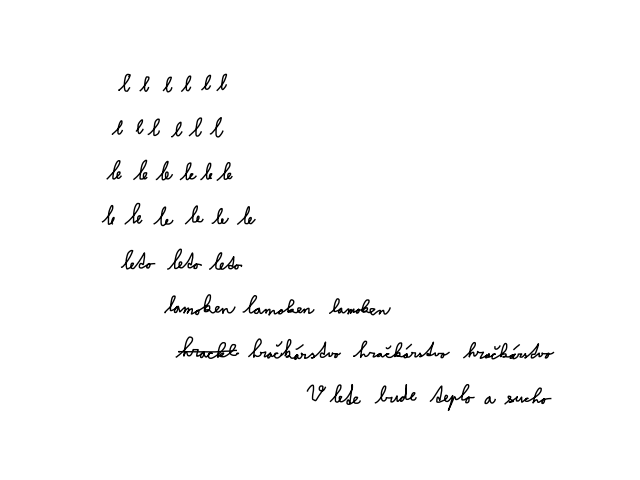 l l l l l l
l l l l l l
le le le le le le
le le le le le le
leto leto leto
lamoken lamoken lamoken
hrackl hračkárstvo hračkárstvo hračkárstvo
V lete bude teplo a sucho